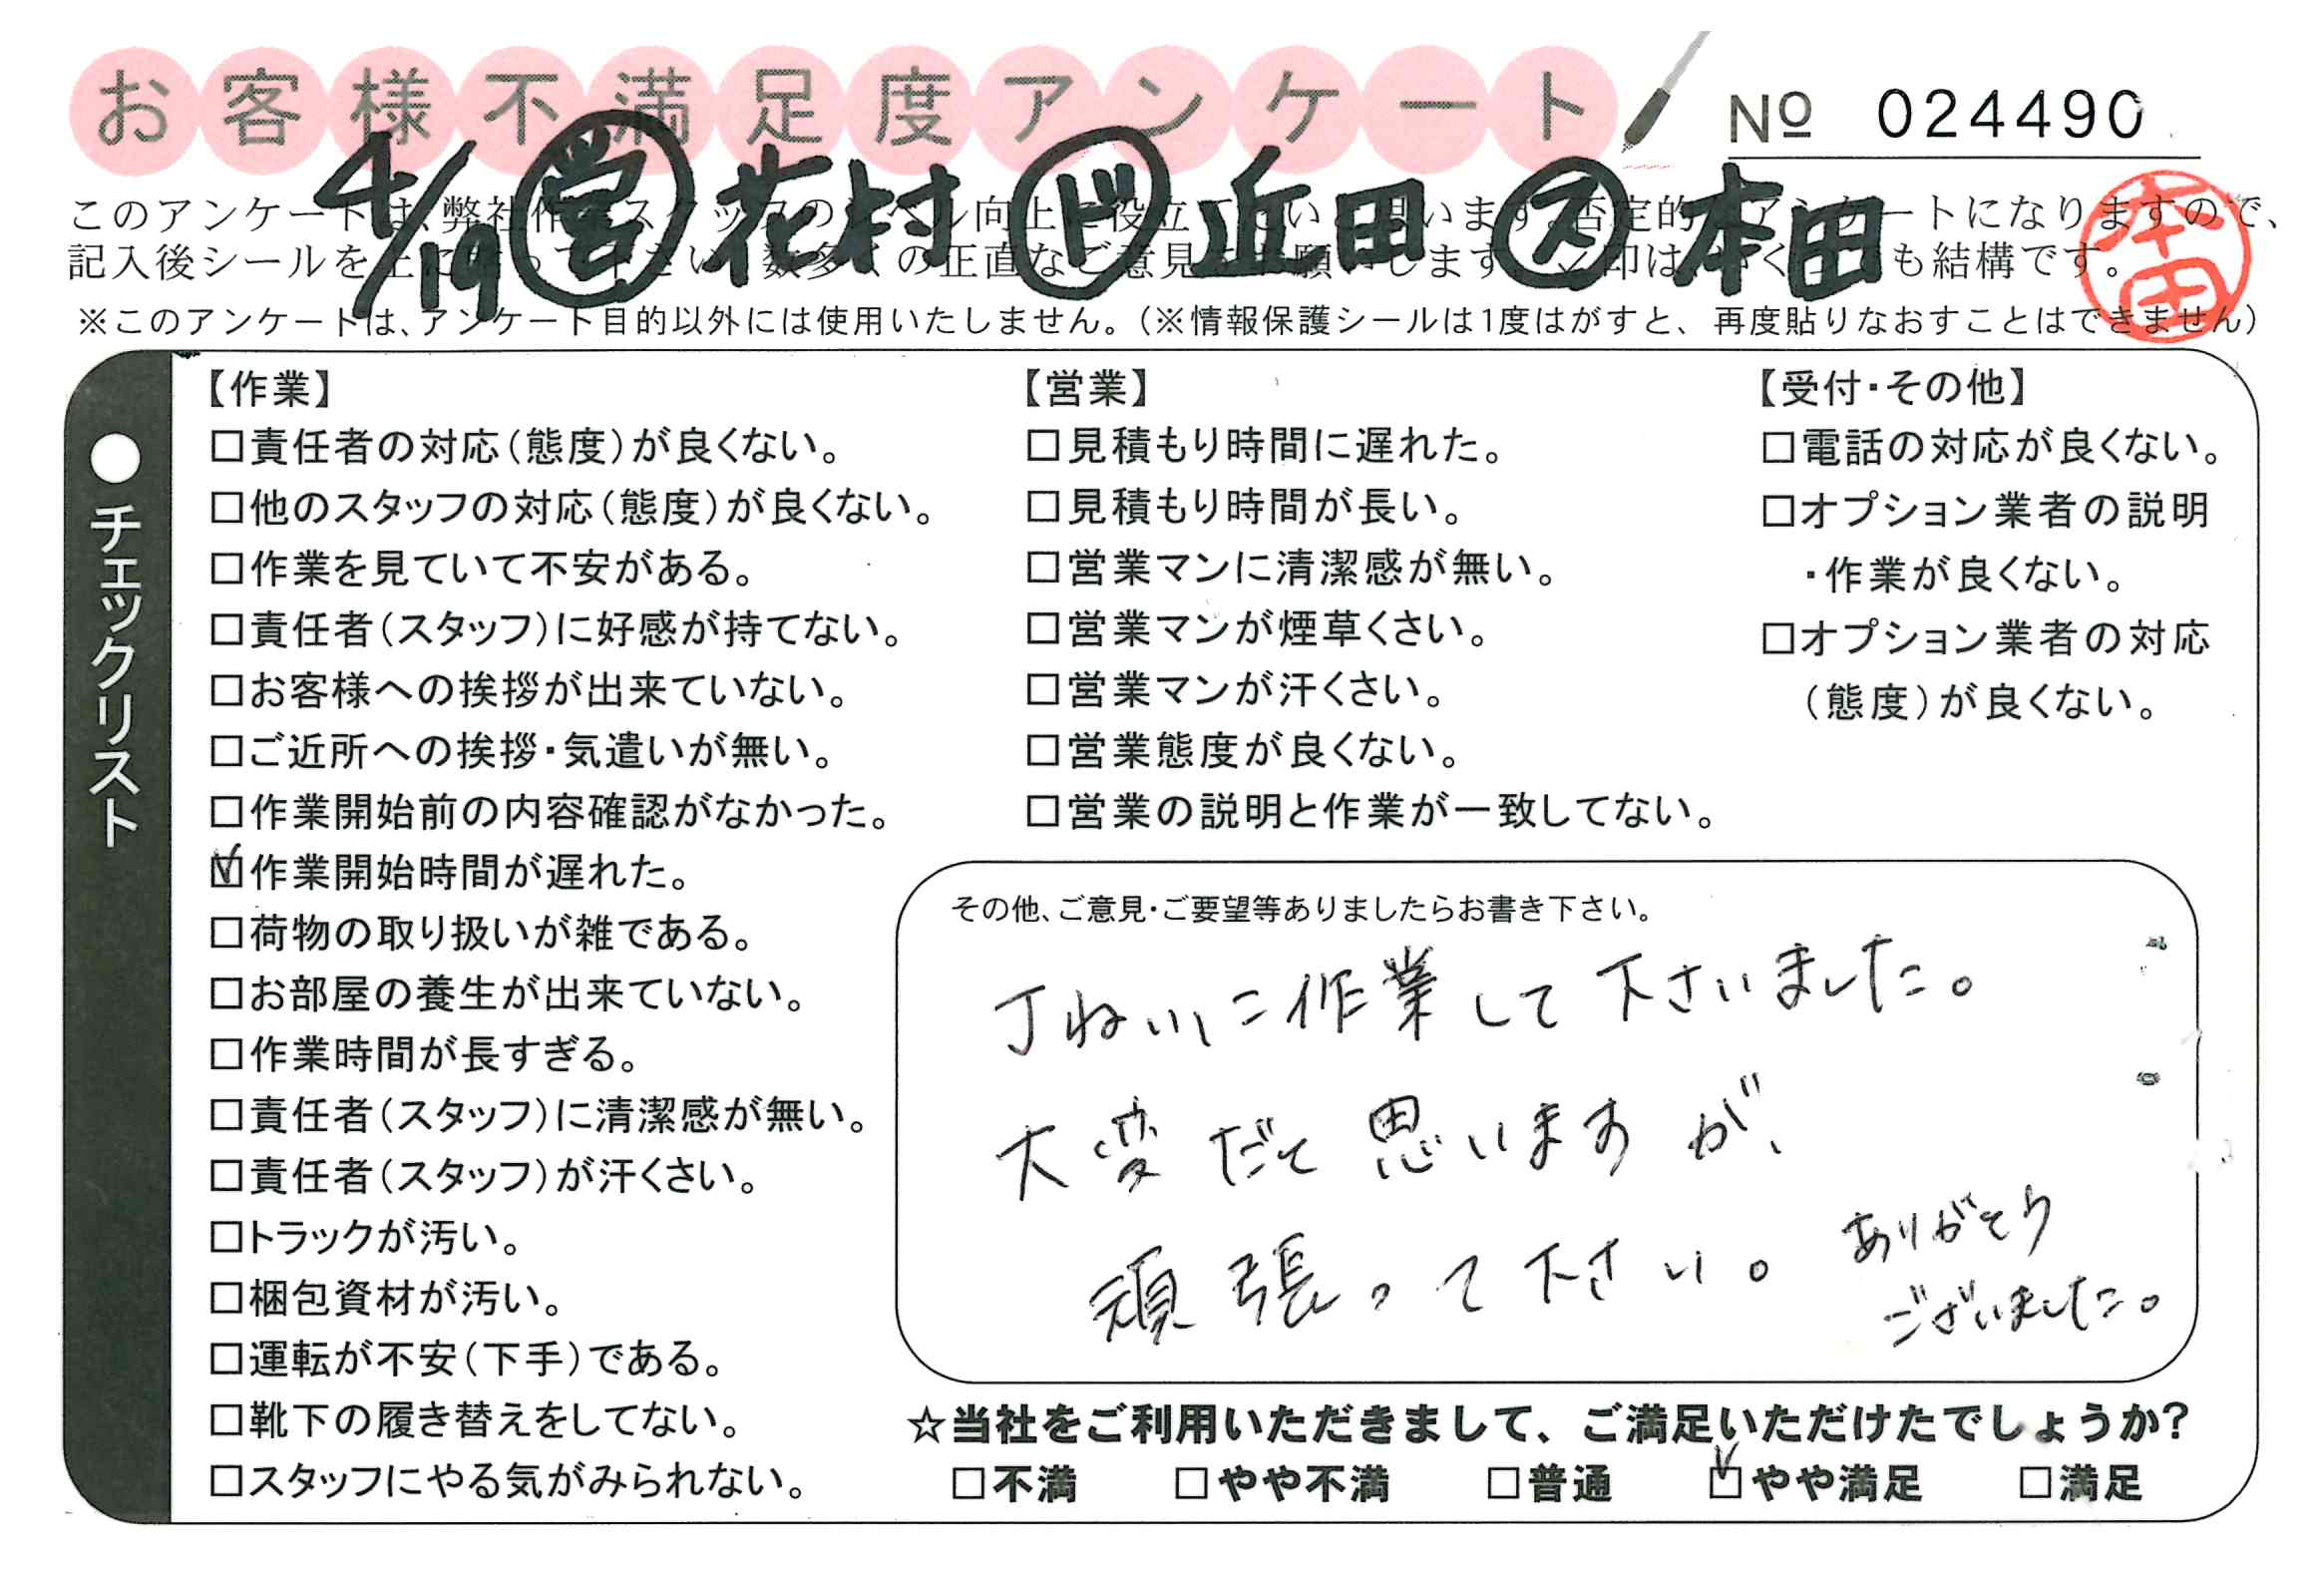 お客様不満足度アンケート
№ 024490
4/19 営 花村 ド 近田 ス 本田
本田
このアンケートは、弊社作業スタッフのレベル向上に役立てたいと思います。否定的なアンケートになりますので、
記入後シールを上に貼って下さい。数多くの正直なご意見をお願いします。✓印はいくつでも結構です。
※このアンケートは、アンケート目的以外には使用いたしません。(※情報保護シールは1度はがすと、再度貼りなおすことはできません)
●チェックリスト
【作業】
□責任者の対応(態度)が良くない。
□他のスタッフの対応(態度)が良くない。
□作業を見ていて不安がある。
□責任者(スタッフ)に好感が持てない。
□お客様への挨拶が出来ていない。
□ご近所への挨拶・気遣いが無い。
□作業開始前の内容確認がなかった。
☑作業開始時間が遅れた。
□荷物の取り扱いが雑である。
□お部屋の養生が出来ていない。
□作業時間が長すぎる。
□責任者(スタッフ)に清潔感が無い。
□責任者(スタッフ)が汗くさい。
□トラックが汚い。
□梱包資材が汚い。
□運転が不安(下手)である。
□靴下の履き替えをしてない。
□スタッフにやる気がみられない。
【営業】
□見積もり時間に遅れた。
□見積もり時間が長い。
□営業マンに清潔感が無い。
□営業マンが煙草くさい。
□営業マンが汗くさい。
□営業態度が良くない。
□営業の説明と作業が一致してない。
【受付・その他】
□電話の対応が良くない。
□オプション業者の説明
・作業が良くない。
□オプション業者の対応
(態度)が良くない。
その他、ご意見・ご要望等ありましたらお書き下さい。
丁ねいに作業して下さいました。
大変だと思いますが、
頑張って下さい。
ありがとう
ございました。
☆当社をご利用いただきまして、ご満足いただけたでしょうか?
□不満 □やや不満 □普通 ☑やや満足 □満足